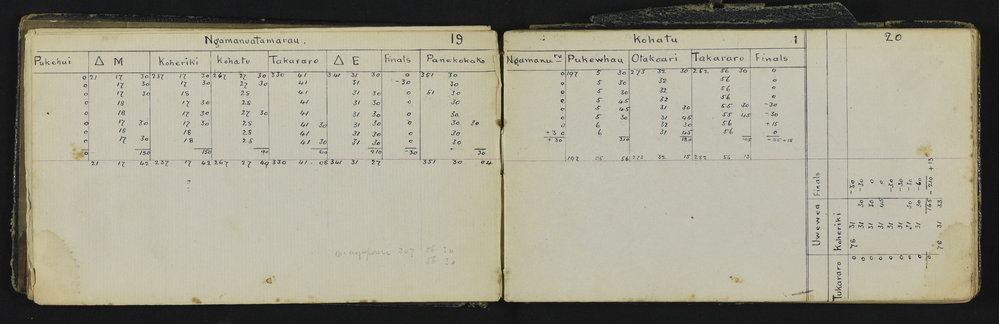 Ngamanuatamarau. 19
Pukehui △ M Koheriki Kohatu Takararo △ E Finals Panekohako
0 21 17 30 237 17 30 267 27 30 330 41 341 31 30 0 351 30
0 17 30 17 30 27 30 41 31 -30 30
0 17 30 18 28 41 31 30 0 31 30
0 18 17 30 28 41 31 30 0 30
0 18 17 30 27 30 41 31 30 0 30
0 17 30 17 30 28 41 30 31 30 0 30 30
0 18 18 28 41 31 30 0 30
0 17 30 18 28 41 30 31 30 0 30
0 150 150 90 60 210 -30 30
21 17 42 237 17 42 267 27 49 330 41 08 341 31 27 351 30 04
?
Kohatu 1 20
Ngamanu Pukewhau Otakoari Takararo Finals
0 197 5 30 273 32 30 282 56 30 0
0 5 30 32 56 0
0 5 30 32 56 0
0 5 45 32 56 0
0 5 45 31 30 55 30 -30
0 5 30 31 45 55 45 -30
0 6 32 30 56 +15
+30 6 31 45 56 0
+30
197 05 56 273 32 15 282 56 13
Uwewea Finals
-30
-30
0
0
-30
-30
-30
-60
-210 +15
Tukararo Koheriki
0 76 31
0 31 30
0 31 30
0 31 45
0 31
0 31
0 31 30
0 31 30
0 165
76 31 33